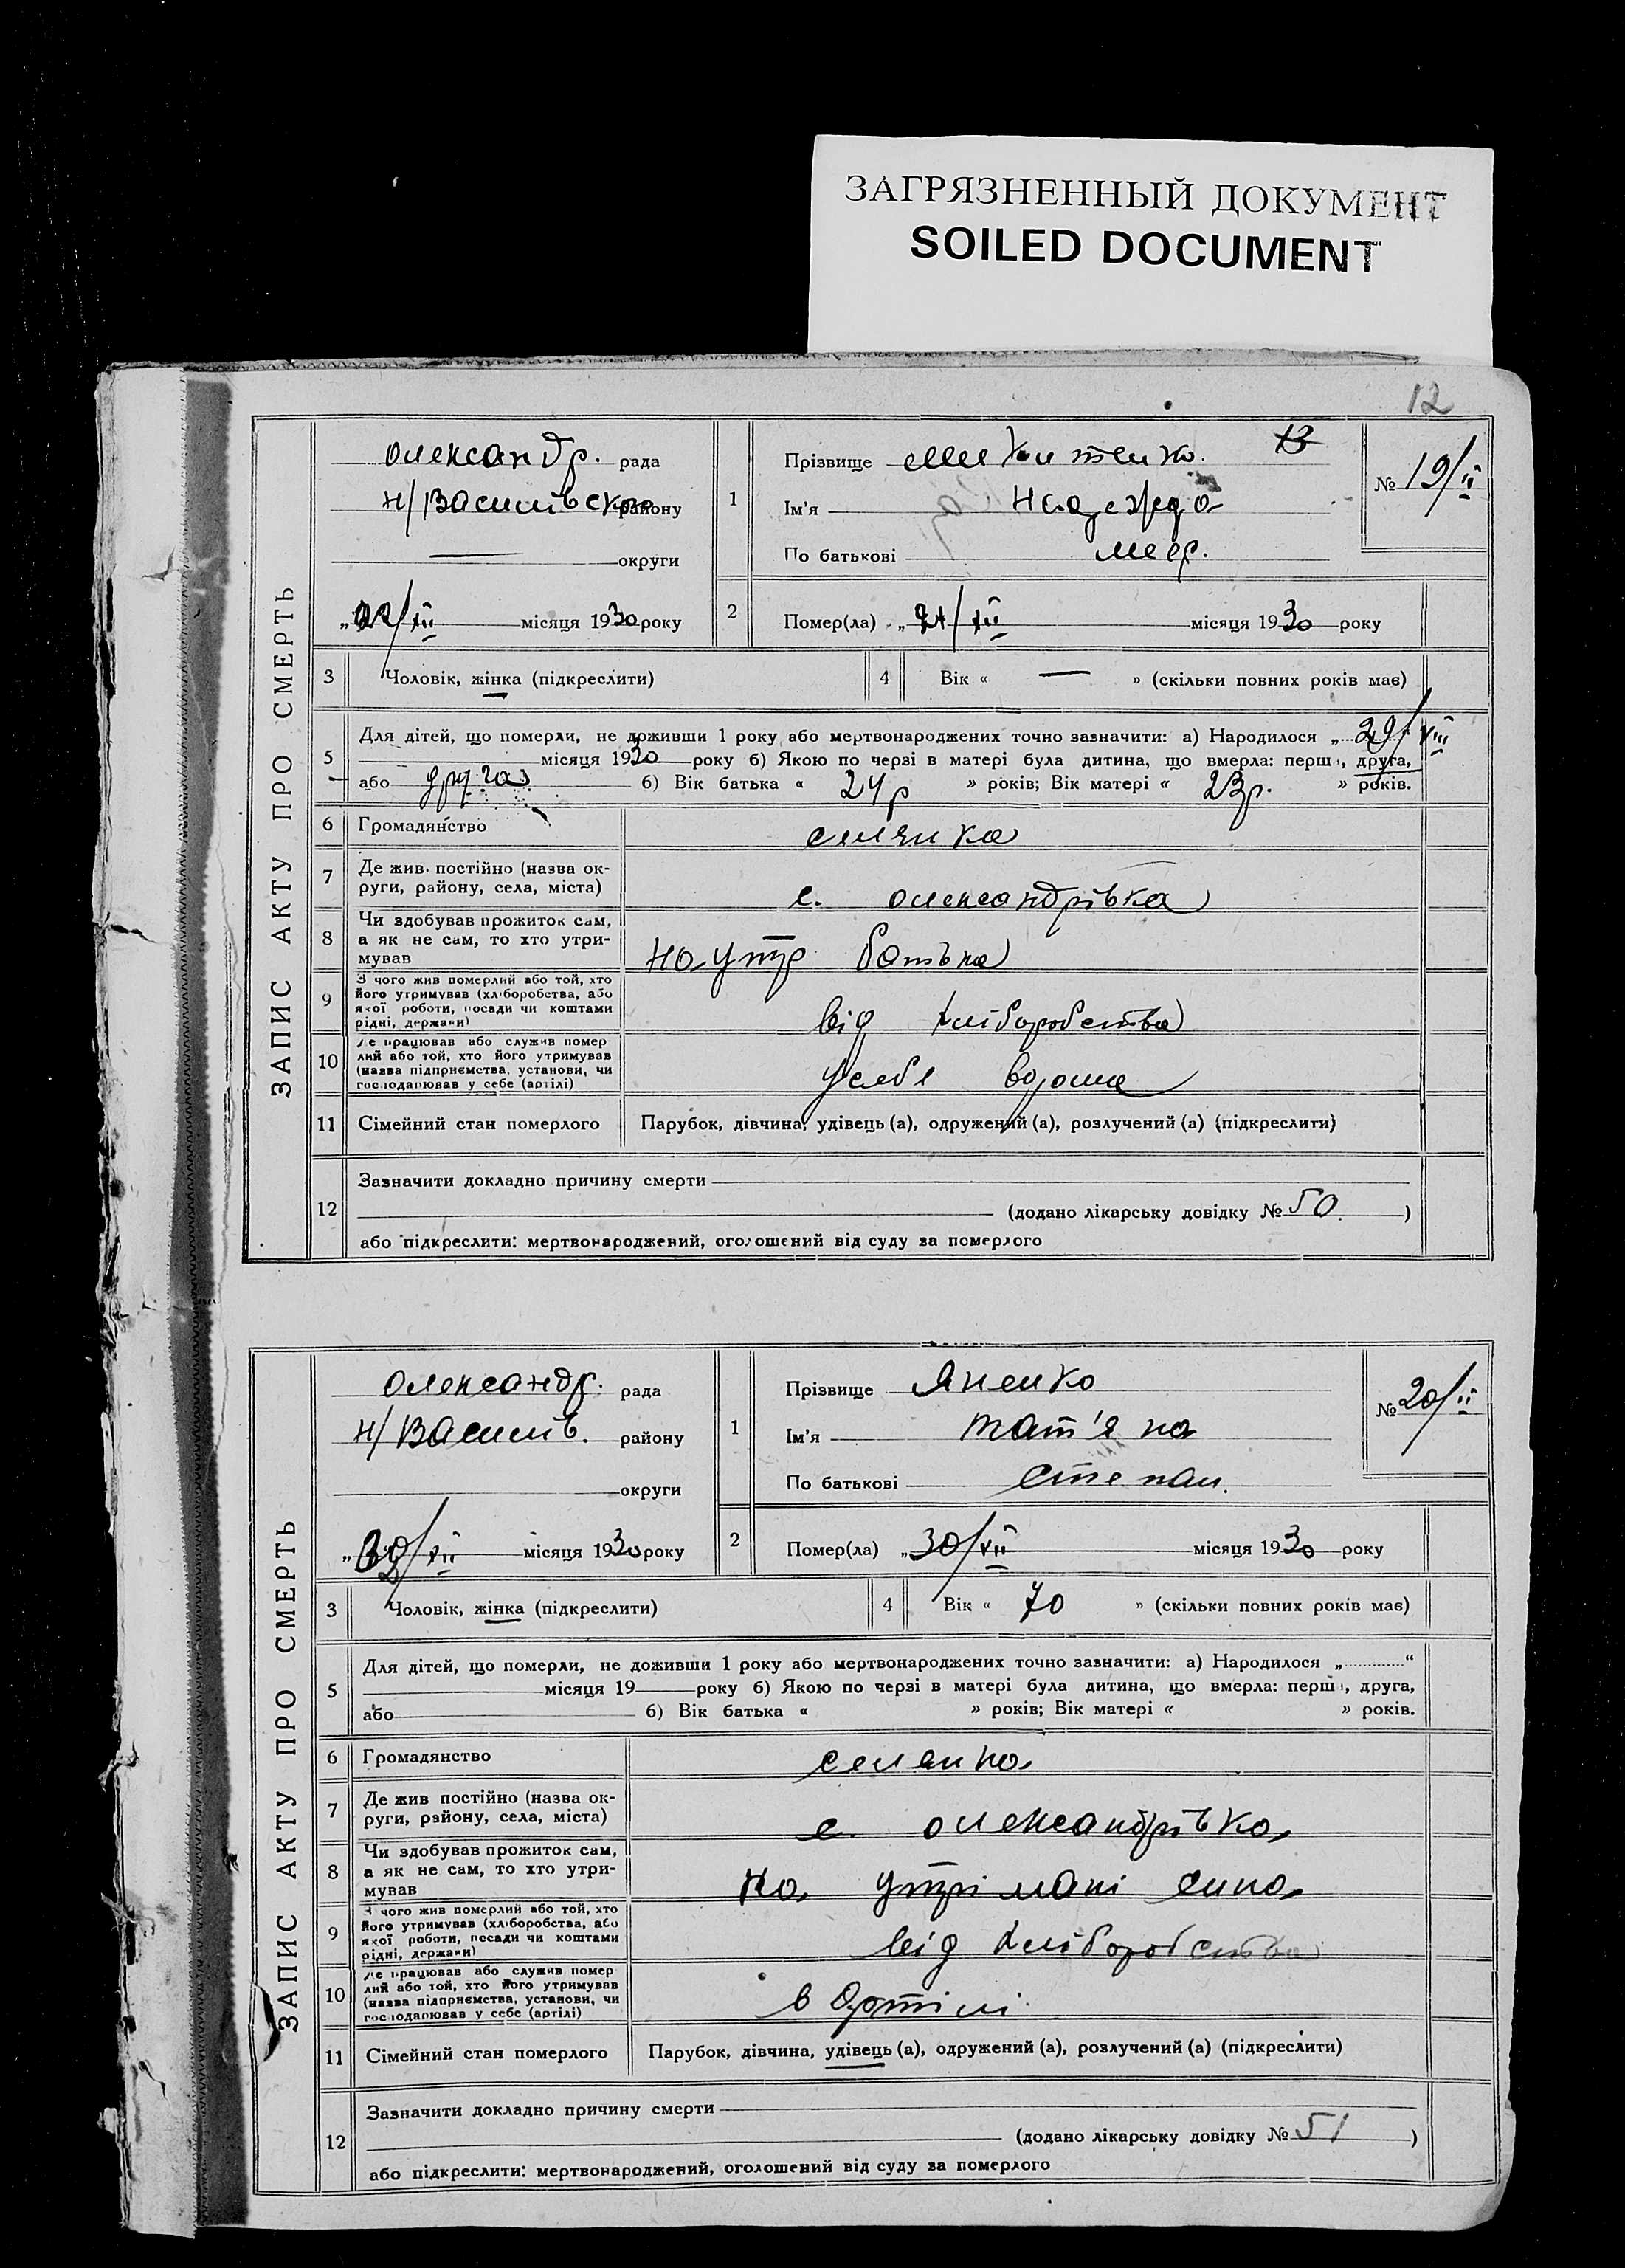 ЗАГРЯЗНЕННЫЙ ДОКУМЕНТ
SOILED DOCUMENT
12
ЗАПИС АКТУ ПРО СМЕРТЬ
Олександр. рада
Н/Васильвского району
округи
„22/XII місяця 1930 року
1
Прізвище 13
Ім'я Надежда
По батькові
№ 19/II
2
Помер(ла) „21/XII місяця 1930 року
3 Чоловік, жінка (підкреслити)
4 Вік « — » (скільки повних років має)
5 Для дітей, що померли, не доживши 1 року або мертвонароджених точно зазначити: а) Народилося „29/VIII
місяця 1930 року б) Якою по черзі в матері була дитина, що вмерла: перша, друга,
або друга б) Вік батька « 24р » років; Вік матері « 23р. » років.
6 Громадянство селянка
7 Де жив постійно (назва ок-
руги, району, села, міста) с. Олександрівка
8 Чи здобував прожиток сам,
а як не сам, то хто утри-
мував на утр батька
9 З чого жив померлий або той, хто
його утримував (хліборобства, або
якої роботи, посади чи коштами
рідні, держави) від хліборобства
10 Де працював або служив помер
лий або той, хто його утримував
(назва підприємства, установи, чи
господарював у себе (артілі) у себе вдома
11 Сімейний стан померлого Парубок, дівчина, удівець (а), одружений (а), розлучений (а) (підкреслити)
12 Зазначити докладно причину смерти
(додано лікарську довідку № 50. )
або підкреслити: мертвонароджений, оголошений від суду за померлого
ЗАПИС АКТУ ПРО СМЕРТЬ
Олександр. рада
Н/Василів. району
округи
„30/XII місяця 1930 року
1
Прізвище Яненко
Ім'я Тат'яна
По батькові Степан.
№ 20/II
2
Помер(ла) „30/XII місяця 1930 року
3 Чоловік, жінка (підкреслити)
4 Вік « 70 » (скільки повних років має)
5 Для дітей, що померли, не доживши 1 року або мертвонароджених точно зазначити: а) Народилося „ “
місяця 19 року б) Якою по черзі в матері була дитина, що вмерла: перша, друга,
або б) Вік батька « » років; Вік матері « » років.
6 Громадянство селянка
7 Де жив постійно (назва ок-
руги, району, села, міста) с. Олександрівка
8 Чи здобував прожиток сам,
а як не сам, то хто утри-
мував на утрімані сина
9 З чого жив померлий або той, хто
його утримував (хліборобства, або
якої роботи, посади чи коштами
рідні, держави) від хліборобства
10 Де працював або служив помер
лий або той, хто його утримував
(назва підприємства, установи, чи
господарював у себе (артілі) в Артілі
11 Сімейний стан померлого Парубок, дівчина, удівець (а), одружений (а), розлучений (а) (підкреслити)
12 Зазначити докладно причину смерти
(додано лікарську довідку № 51 )
або підкреслити: мертвонароджений, оголошений від суду за померлого